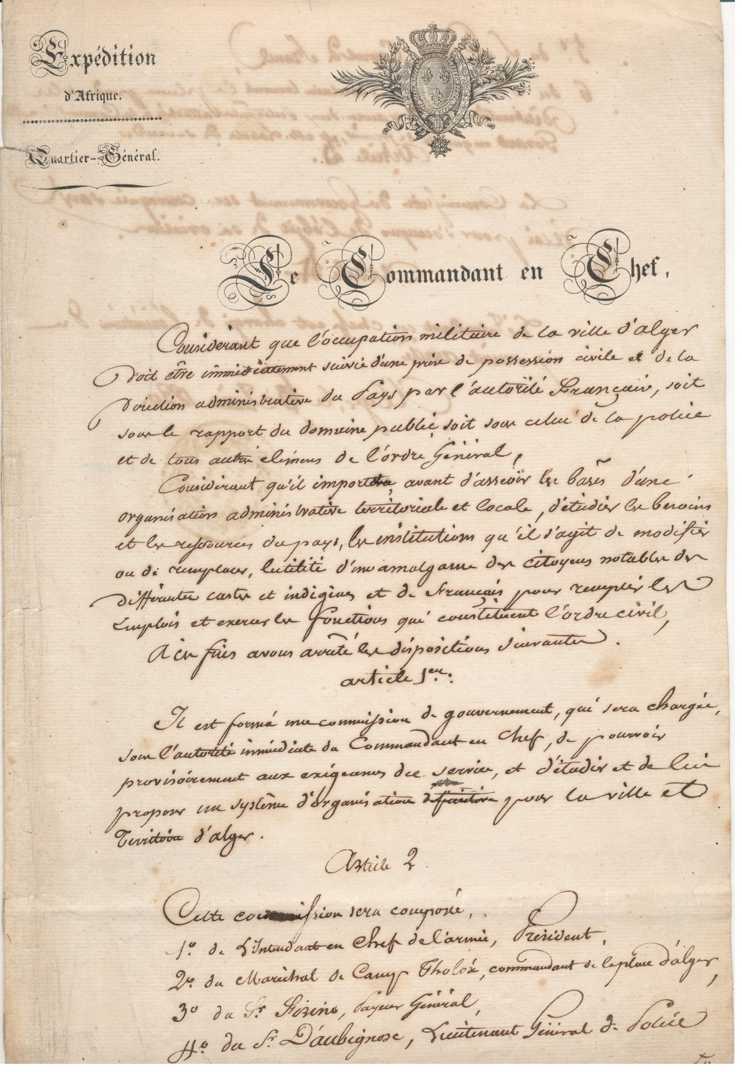 Expédition
d'Afrique.
Quartier-Général.
Le Commandant en Chef,
Considerant que l'occupation militaire de la ville d'alger
doit être immédiatement suivie d'une prise de possession civile et de la
direction administrative du Pays par l'autorité Française, soit
sous le rapport du domaine public soit sous celui de la police
et de tous autres élémens de l'ordre Général,
Considerant qu'il importe avant d'asseoir les bases d'une
organisation administrative territoriale et locale, d'étudier les besoins
et les ressources du pays, les institutions qu'il s'agit de modifier
ou de remplacer, l'utilité d'un amalgame des citoyens notables des
différentes castes et indigènes et de français pour remplir les
Emplois et exercer les fonctions qui constituent l'ordre civil,
A ces fins avons arrêté les dispositions suivantes.
article 1er.
Il est formé une commission de gouvernement, qui sera chargée,
sous l'autorité immédiate du Commandant en Chef, de pourvoir
provisoirement aux exigeances du service, et d'étudier et de lui
proposer un système d'organisation pour la ville et
Territoire d'alger.
Article 2
Cette commission sera composée,
1º de L'Intendant en Chef de l'armée, Président,
2º du Maréchal de Camp Tholozé, commandant de la place d'alger,
3º du Sr Firino, Payeur Général,
4º du Sr D'aubignosc, Lieutenant Général de Police